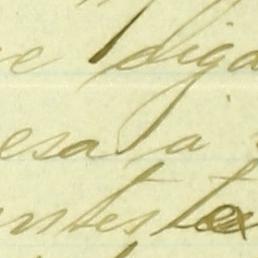 e diga
esa a
ntes